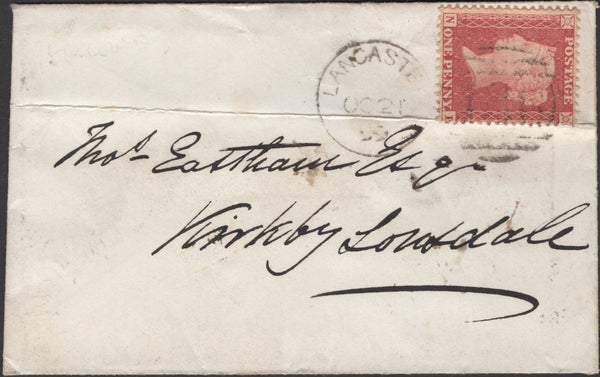 LANCASTE
OC 21
POSTAGE
ONE PENNY
N
Thos Eastham Esqr
Kirkby Lonsdale